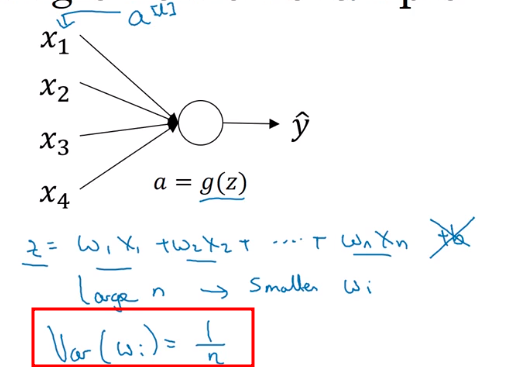 a^[l]
x₁
x₂
x₃
x₄
ŷ
a = g(z)
z = w₁x₁ + w₂x₂ + ..... + wₙxₙ +b
Large n → Smaller wᵢ
Var(wᵢ) = 1/n